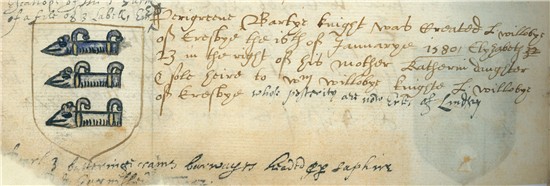 of a file of 3 Labells
Perigreene Bartye knight was Created L willobye
of Eresbye the 16th of Januarye 1580 Elyzabeth
23 in the right of his mother Katherin daughter
& sole heire to Wm willobye knighte L willobye
of Eresbye whose posterity are now Erles of Lindsey
3 batteringe rams barwayes headed or Saphire